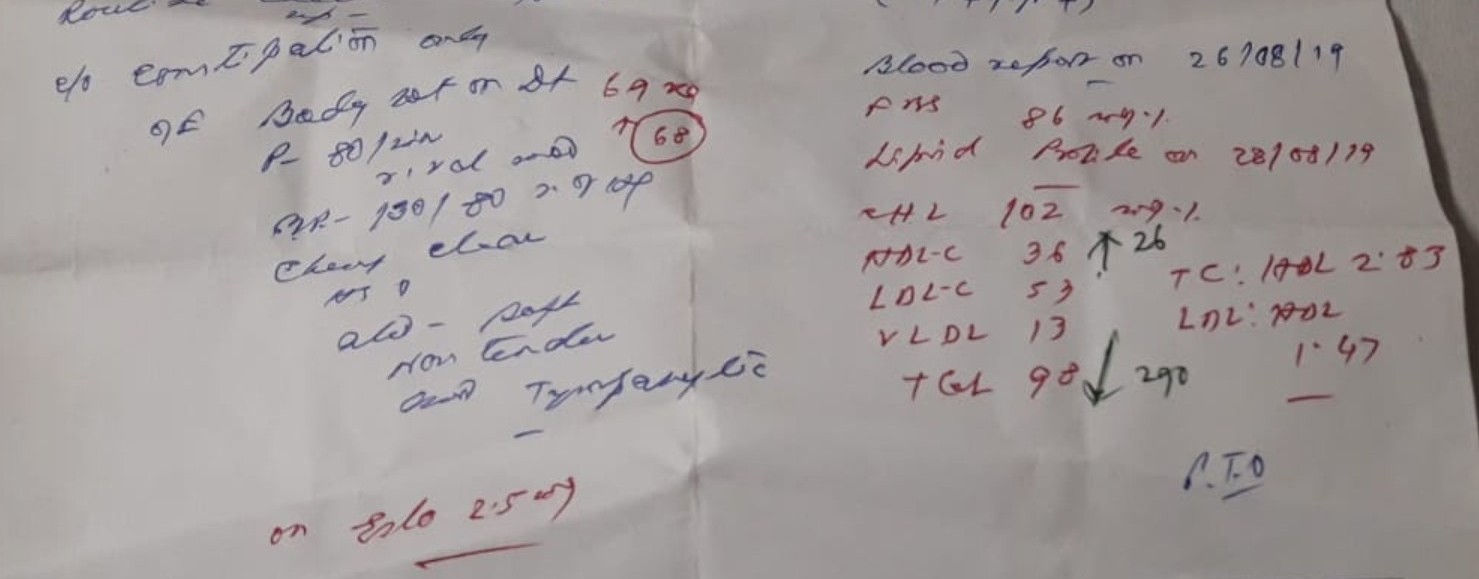 c/o Constipation only
O/E Body wt on dt 69 kg
↑ 68
P- 80/min
BP- 130/80
Chest clear
Abd - soft
Non tender
Tympanytic
on Eslo 2.5 mg
Blood report on 26/08/19
FBS 86 mg%
Lipid Profile on 28/08/19
CHL 102 mg%
HDL-C 36 ↑ 26
LDL-C 53
VLDL 13
TGL 98 ↓ 290
TC: HDL 2.83
LDL: HDL
1.47
P.T.O